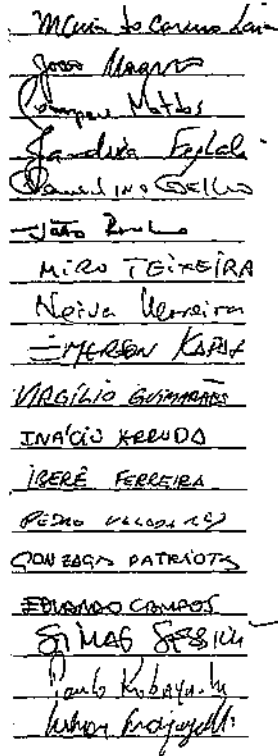 Maria do Carmo Lara
João Magno
Mattos
Jandira Feghali
COELHO
João
MIRO TEIXEIRA
Neiva Moreira
EMERSON KAPAZ
VIRGÍLIO GUIMARÃES
INÁCIO ARRUDA
IBERÊ FERREIRA
PEDRO VALADARES
GONZAGA PATRIOTA
EDUARDO CAMPOS
SIMÃO SESSIM
Paulo Kobayashi